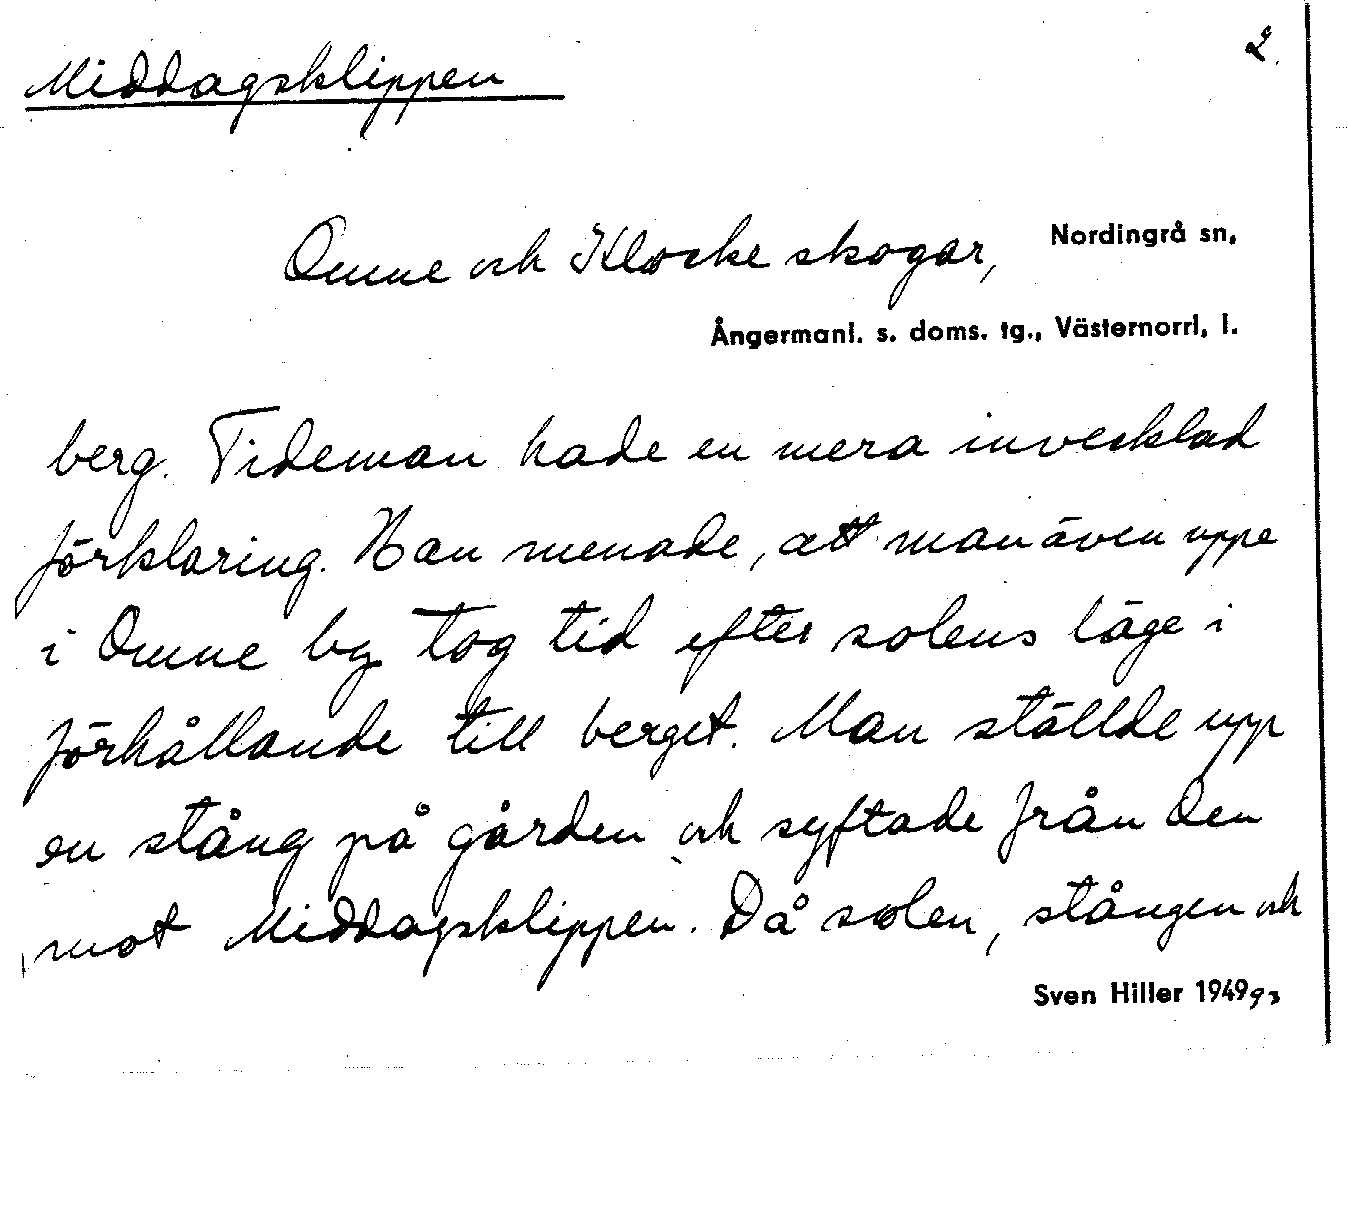 Middagsklippen
2.
Omne och Klocke skogar,
Nordingrå sn,
Ångermanl. s. doms. tg., Västernorrl, l.
berg. Tideman hade en mera invecklad
förklaring. Han menade, att man även uppe
i Omne by tog tid efter solens läge i
förhållande till berget. Man ställde upp
en stång på gården och syftade från den
mot Middagsklippen. Då solen, stången och
Sven Hiller 1949